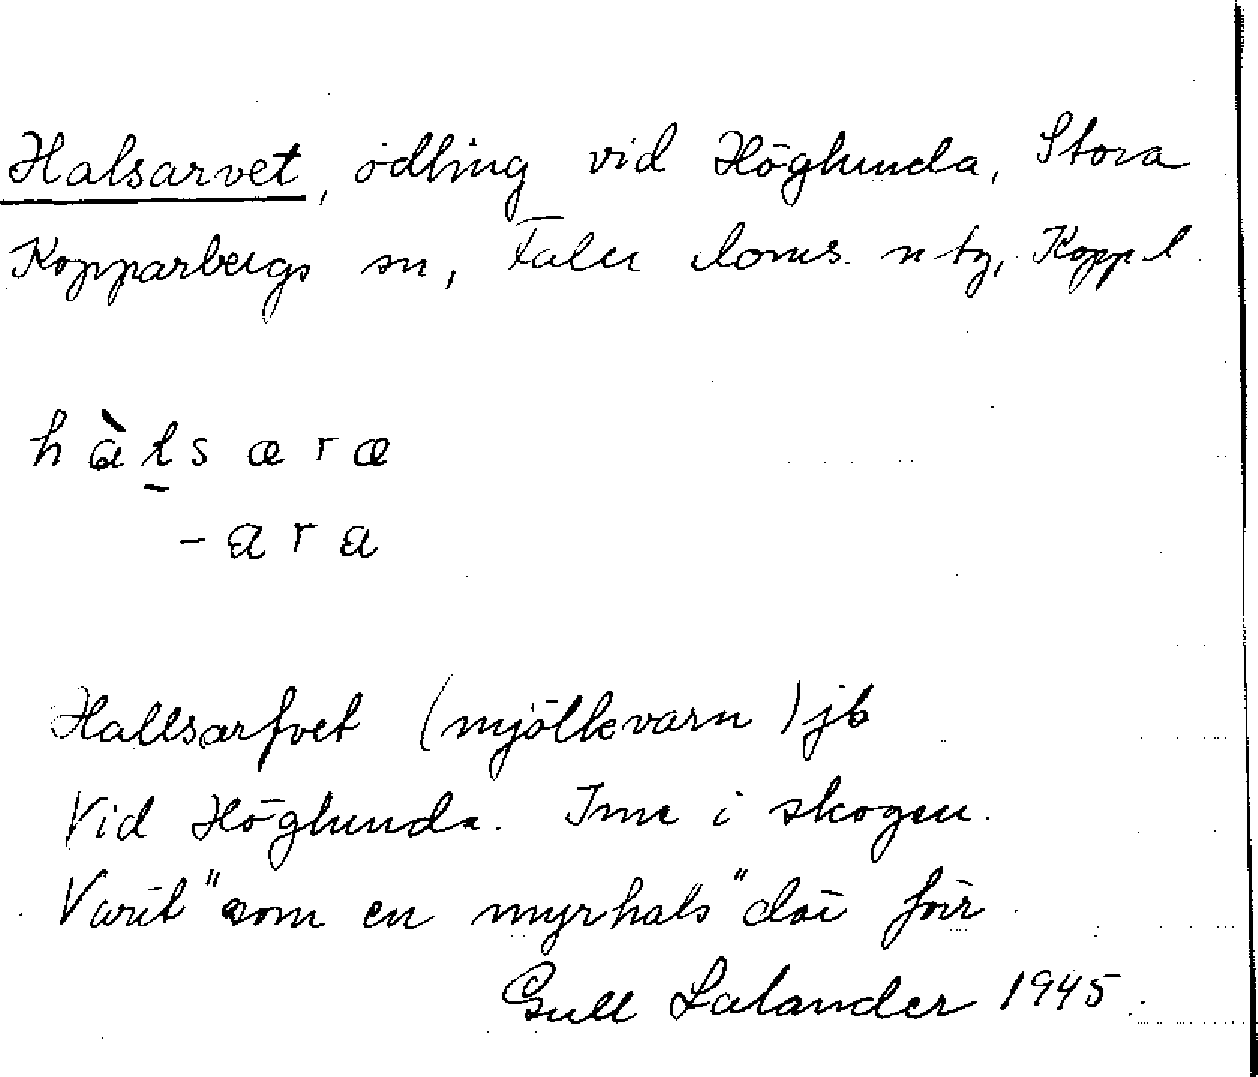 Halsarvet, odling vid Höglunda, Stora
Kopparbergs sn, Falu doms. n tg, Kopp l.
hàlsæræ
-ara
Hallsarfvet (mjölkvarn) jb
Vid Höglunda. Inne i skogen.
Varit "som en myrhals" där förr
Gull Salander 1945.